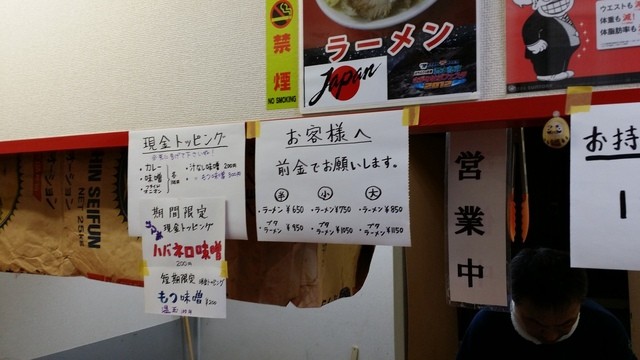 禁煙
NO SMOKING
ラーメン
Japan
2012
ウエストも
体重も
体脂肪率も
現金トッピング
・カレー
・味噌
・フライドオニオン
各100円
・汁なし味噌 200円
期間限定
現金トッピング
ハバネロ味噌
200円
短期限定 現金トッピング
もつ味噌
¥200
お客様へ
前金でお願いします。
半 小 大
・ラーメン ¥650 ・ラーメン ¥750 ・ラーメン ¥850
・ブタラーメン ¥950 ・ブタラーメン ¥1050 ・ブタラーメン ¥1150
営業中
お持
HIN SEIFUN
NET 25